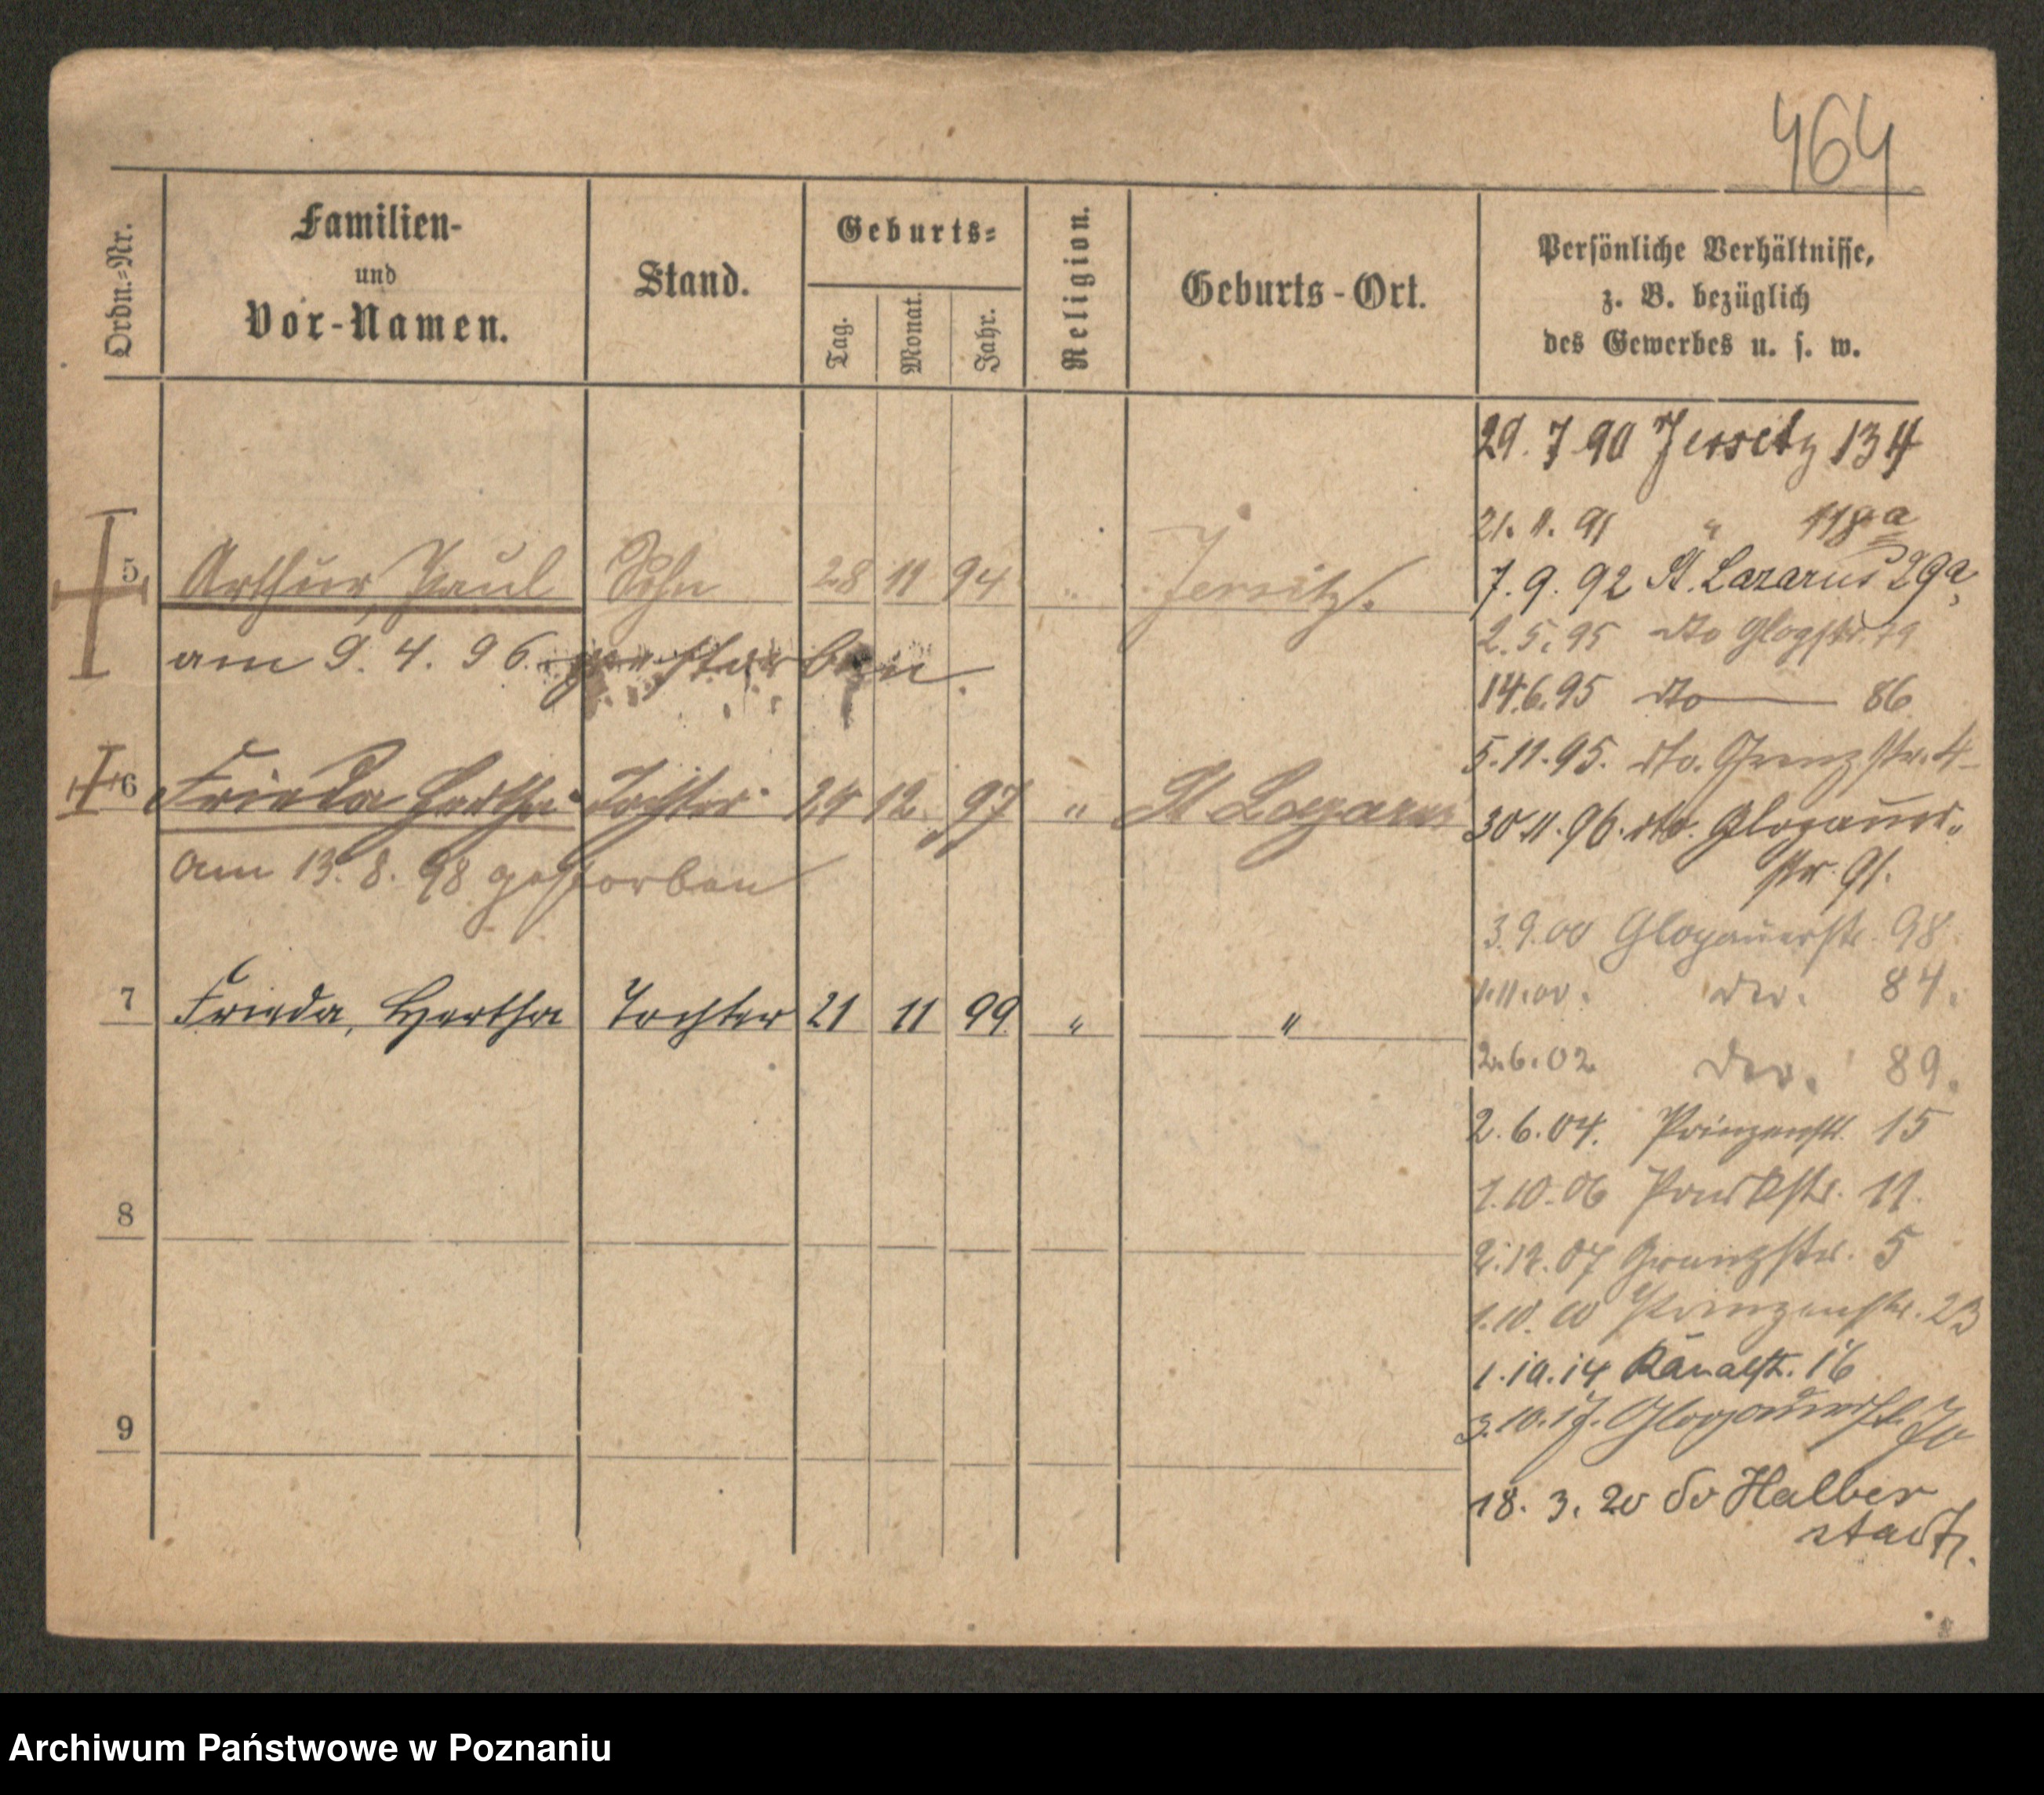 464
Ordn.=Nr.
Familien-
und
Vor-Namen.
Stand.
Geburts=
Tag.
Monat.
Jahr.
Religion.
Geburts-Ort.
Persönliche Verhältnisse,
z. B. bezüglich
des Gewerbes u. s. w.
5 Arthur, Paul Sohn 28 11 94 " Jersitz.
am 9. 4. 96. gestorben.
6 Frieda Hertha Tochter 24 12. 97 " St Lazarus
am 13. 8. 98 gestorben
7 Frieda, Hertha Tochter 21 11 99 " "
8
9
29. 7 90 Jersitz 134
21. 11. 91 " 118a
7. 9. 92 St. Lazarus 29a,
2. 5. 95 dto Glogstr. 79
14.6.95 dto — 86
5.11.95. dto. Grenzstr. 4
30 11. 96. dto. Glogauer-
str. 91.
3.9.00 Glogauerstr. 98.
1.11.00. do. 84.
2.6.02. do. 89.
2.6.04. Prinzenstr. 15
1.10.06 Parkstr. 11.
2.12.07 Grenzstr. 5
1.10.10 Prinzenstr. 23
1.10.14 Kanalstr. 16
3.10.17. Glogauerstr. 70
18. 3. 20 Halber
stadt.
Archiwum Państwowe w Poznaniu